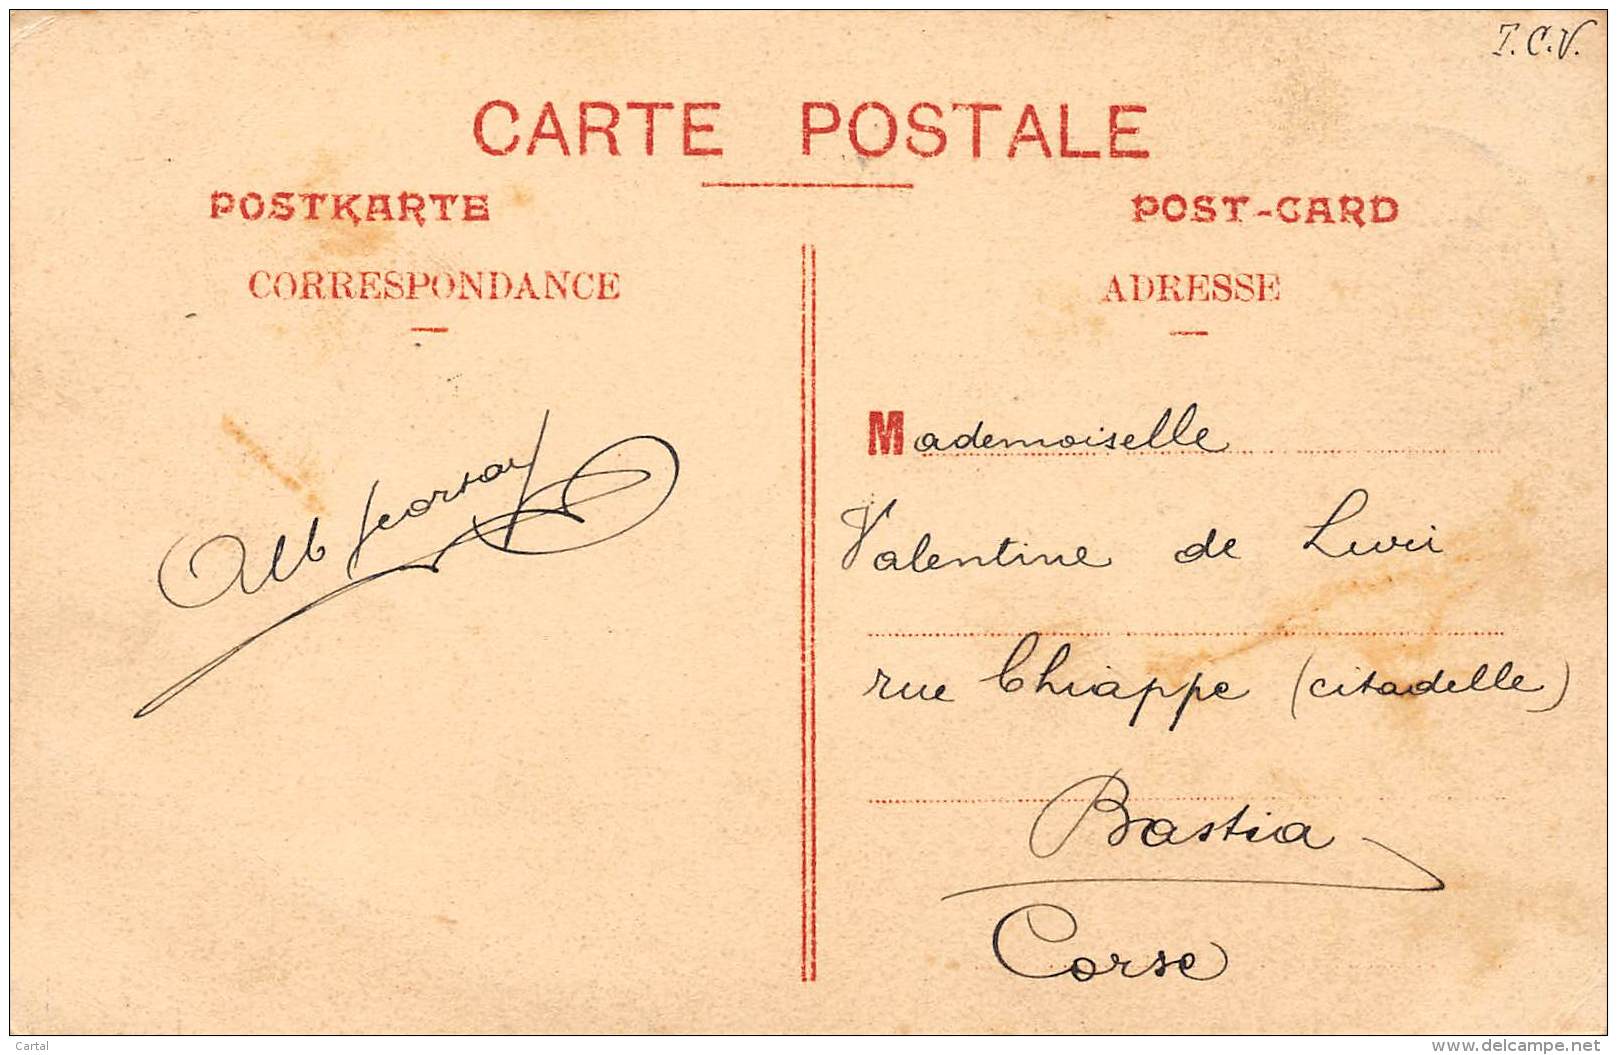 T.C.V.
CARTE POSTALE
POSTKARTE
POST-CARD
CORRESPONDANCE
ADRESSE
Alb
Mademoiselle
Valentine de Livri
rue Chiappe (citadelle)
Bastia
Corse
Cartal
www.delcampe.net